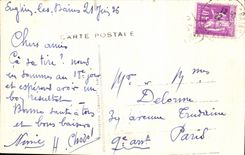 Eugénie les Bains 21 Juin 36
CARTE POSTALE
Chers amis
Ça va-t-il ? nous
en sommes au 11e jour
et espérons avoir un
bon resultat.
Bonne santé à tous
et bons baisers
Mr & Mmes
Delorme
34 avenue Trudaine
Paris
9e arrt